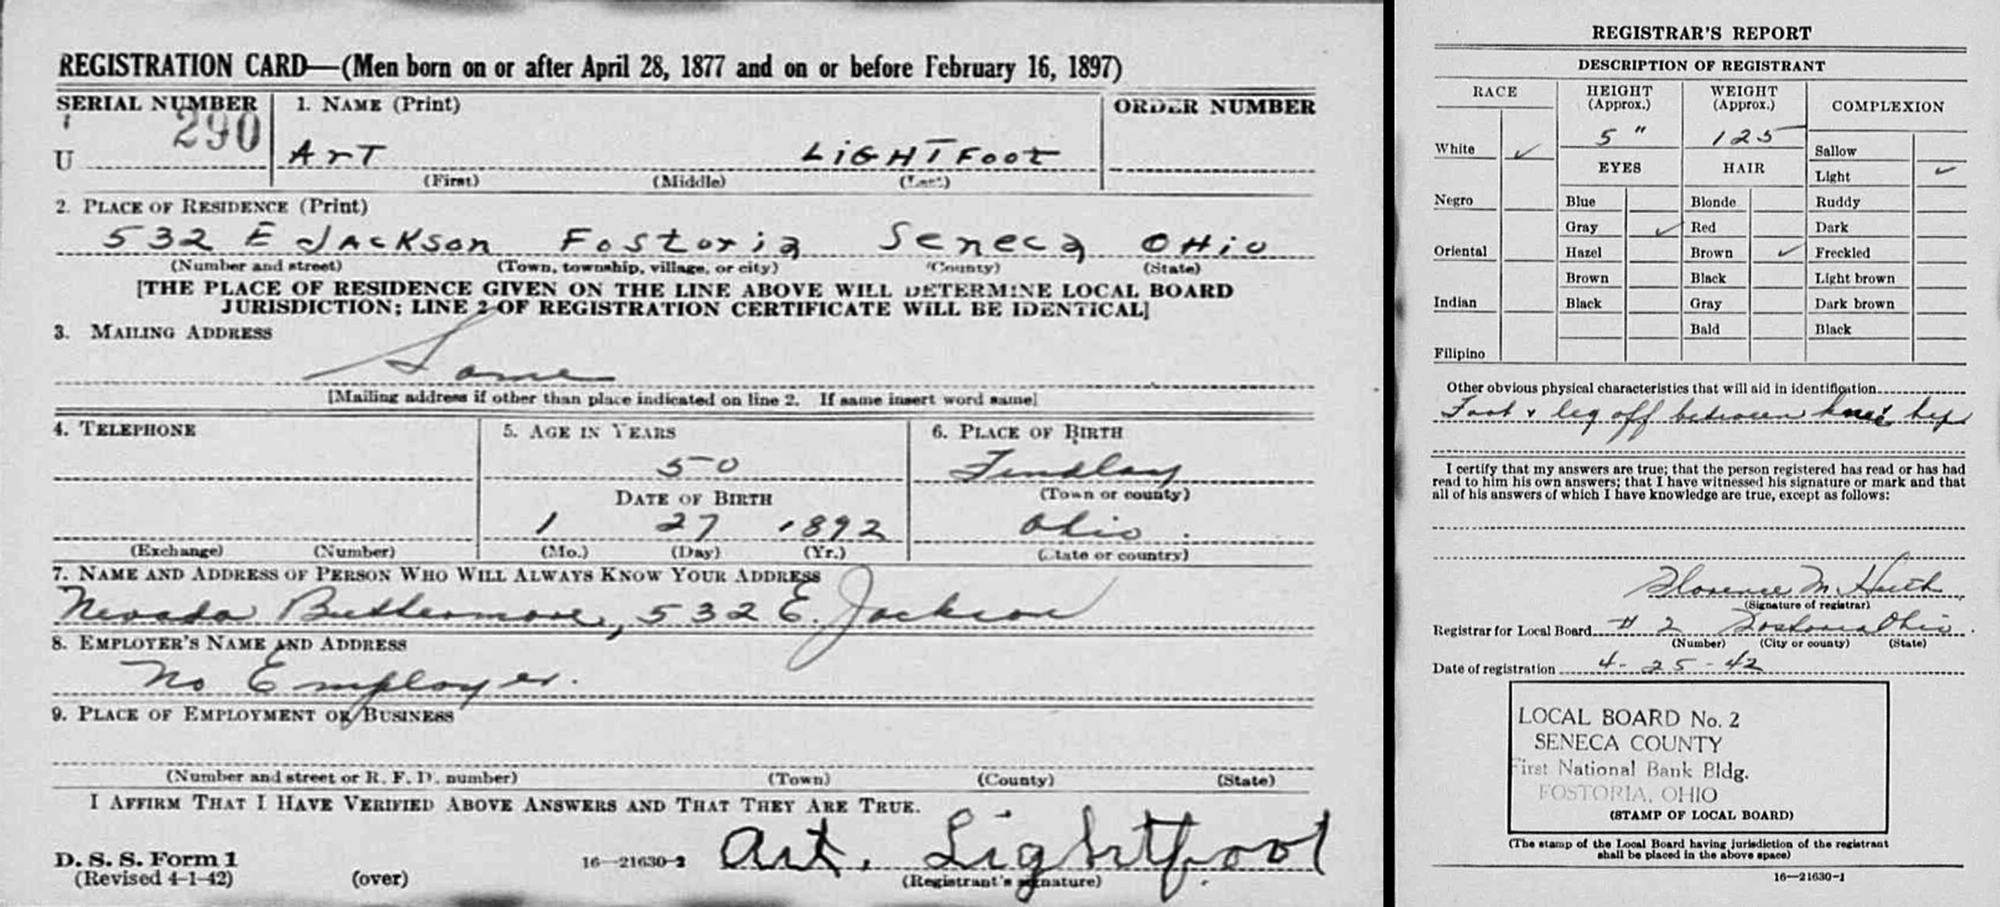 REGISTRATION CARD—(Men born on or after April 28, 1877 and on or before February 16, 1897)
SERIAL NUMBER
1. NAME (Print)
ORDER NUMBER
U 290
ART LIGHTFOOT
(First) (Middle) (Last)
2. PLACE OF RESIDENCE (Print)
532 E JACKSON FOSTORIA SENECA OHIO
(Number and street) (Town, township, village, or city) (County) (State)
[THE PLACE OF RESIDENCE GIVEN ON THE LINE ABOVE WILL DETERMINE LOCAL BOARD
JURISDICTION; LINE 2 OF REGISTRATION CERTIFICATE WILL BE IDENTICAL]
3. MAILING ADDRESS
Same
[Mailing address if other than place indicated on line 2. If same insert word same]
4. TELEPHONE
5. AGE IN YEARS
6. PLACE OF BIRTH
50
Findlay
DATE OF BIRTH
(Town or county)
1 27 1892
Ohio
(Exchange) (Number)
(Mo.) (Day) (Yr.)
(State or country)
7. NAME AND ADDRESS OF PERSON WHO WILL ALWAYS KNOW YOUR ADDRESS
Nevada Buttermore, 532 E. Jackson
8. EMPLOYER'S NAME AND ADDRESS
No Employer.
9. PLACE OF EMPLOYMENT OR BUSINESS
(Number and street or R. F. D. number) (Town) (County) (State)
I AFFIRM THAT I HAVE VERIFIED ABOVE ANSWERS AND THAT THEY ARE TRUE.
Art. Lightfoot
D. S. S. Form 1
(Revised 4-1-42)
(over)
16—21630-2
(Registrant's signature)
REGISTRAR'S REPORT
DESCRIPTION OF REGISTRANT
RACE
HEIGHT
(Approx.)
WEIGHT
(Approx.)
COMPLEXION
5 "
125
White ✓
EYES
HAIR
Sallow
Light ✓
Negro
Blue
Blonde
Ruddy
Gray ✓
Red
Dark
Oriental
Hazel
Brown ✓
Freckled
Brown
Black
Light brown
Indian
Black
Gray
Dark brown
Bald
Black
Filipino
Other obvious physical characteristics that will aid in identification
Foot & leg off between knee hip
I certify that my answers are true; that the person registered has read or has had
read to him his own answers; that I have witnessed his signature or mark and that
all of his answers of which I have knowledge are true, except as follows:
Florence M.
(Signature of registrar)
Registrar for Local Board # 2 Fostoria Ohio
(Number) (City or county) (State)
Date of registration 4-25-42
LOCAL BOARD No. 2
SENECA COUNTY
First National Bank Bldg.
FOSTORIA, OHIO
(STAMP OF LOCAL BOARD)
(The stamp of the Local Board having jurisdiction of the registrant
shall be placed in the above space)
16—21630-1